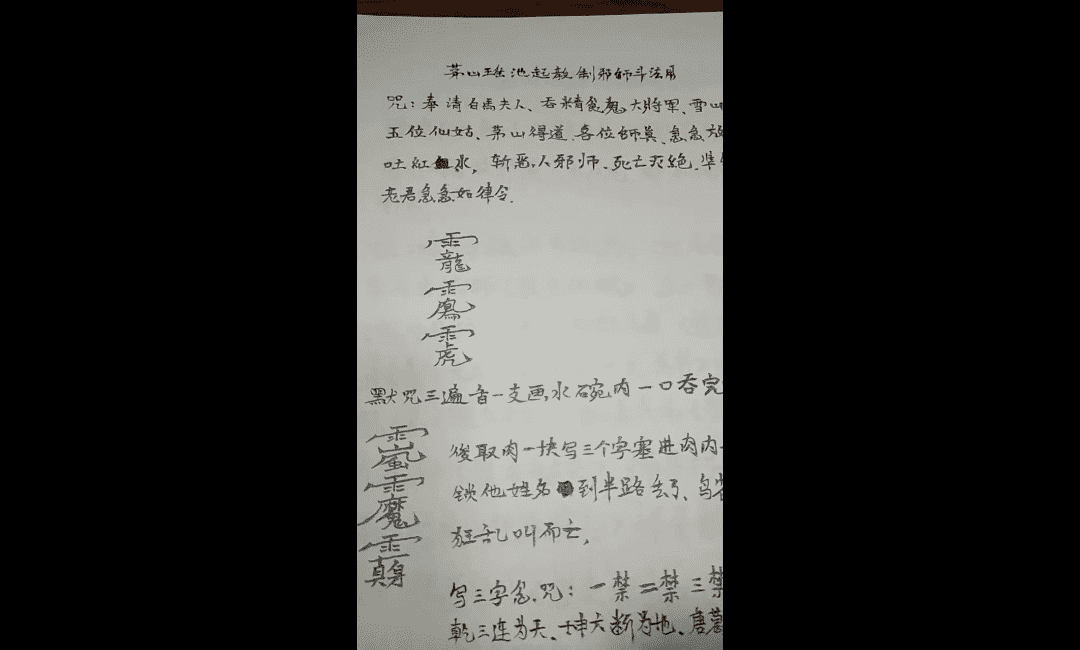 茅山瑶池起教制邪師斗法用
咒：奉請白馬夫人、吞精食鬼大將軍、雪山
五位仙姑、茅山得道、各位師真、急急放
吐紅血水，斩恶人邪师、死亡灭絕、準
老君急急如律令.
龍
鳳
虎
默咒三遍香一支画水碗内一口吞完
後取肉一块写三个字塞进肉内
锁他姓名到半路丢了、鸟
狂乱叫而亡，
魔
写三字忿咒：一禁二禁三禁
乾三連为天、坤六断为地、唐